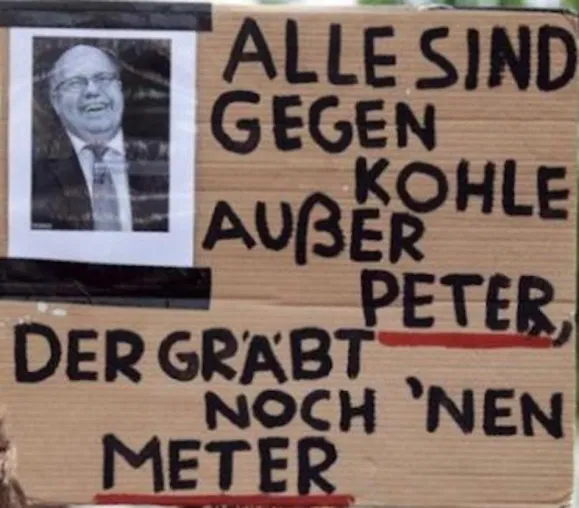 ALLE SIND
GEGEN
KOHLE
AUßER
PETER,
DER GRÄBT
NOCH 'NEN
METER